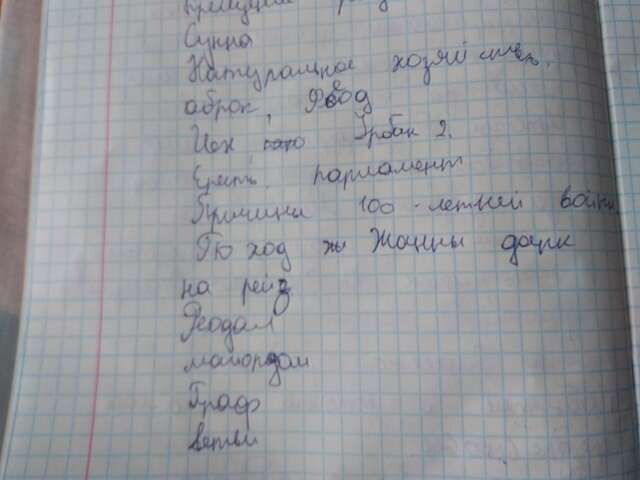 Сунна
Натуральное хозяйство.
оброк, Феод
Цех, Урбан 2.
Ересь, парламент
Причины 100-летней войны
Поход Жанны дарк
на рейз
Феодал
майордом
Граф
ветви